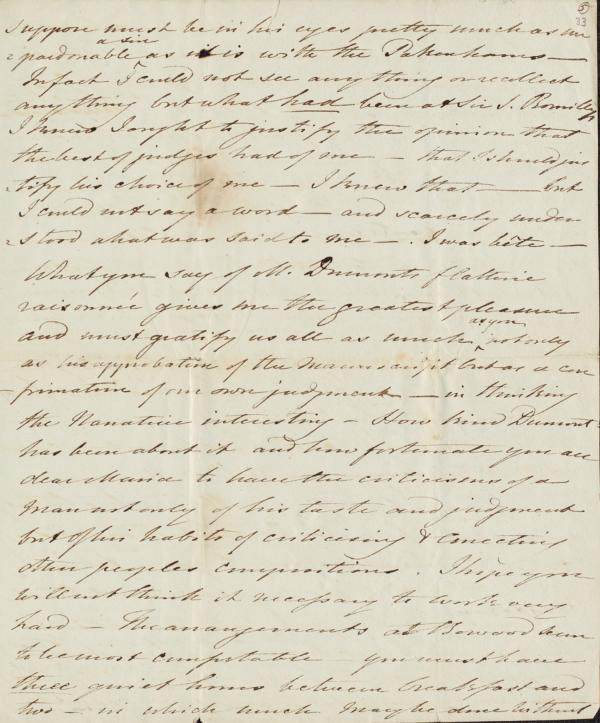 5
33
suppose must be in his eyes pretty much as un
a sin
= pardonable as it is with the Pakenhams —
In fact I could not see anything or recollect
anything but what had been at Sir S. Romillys
I knew I ought to justify the opinion that
the best of judges had of me — that I should jus
= tify his choice of me — I knew that — but
I could not say a word — and scarcely under
= stood what was said to me — . I was bête —
What you say of M. Dumonts flatterie
raisonnée gives me the greatest pleasure
as you
and must gratify us all as much not only
as his approbation of the Manuscript but as a con
firmation of our own judgment — in thinking
the Narrative interesting — How kind Dumont
has been about it and how fortunate you are
dear Maria to have the criticisms of a
man not only of his taste and judgment
but of his habits of criticising & correcting
other peoples compositions . I hope you
will not think it necessary to work very
hard — The arrangements at Bowood seem
to be most comfortable — you must have
three quiet hours between breakfast and
two — in which much may be done without